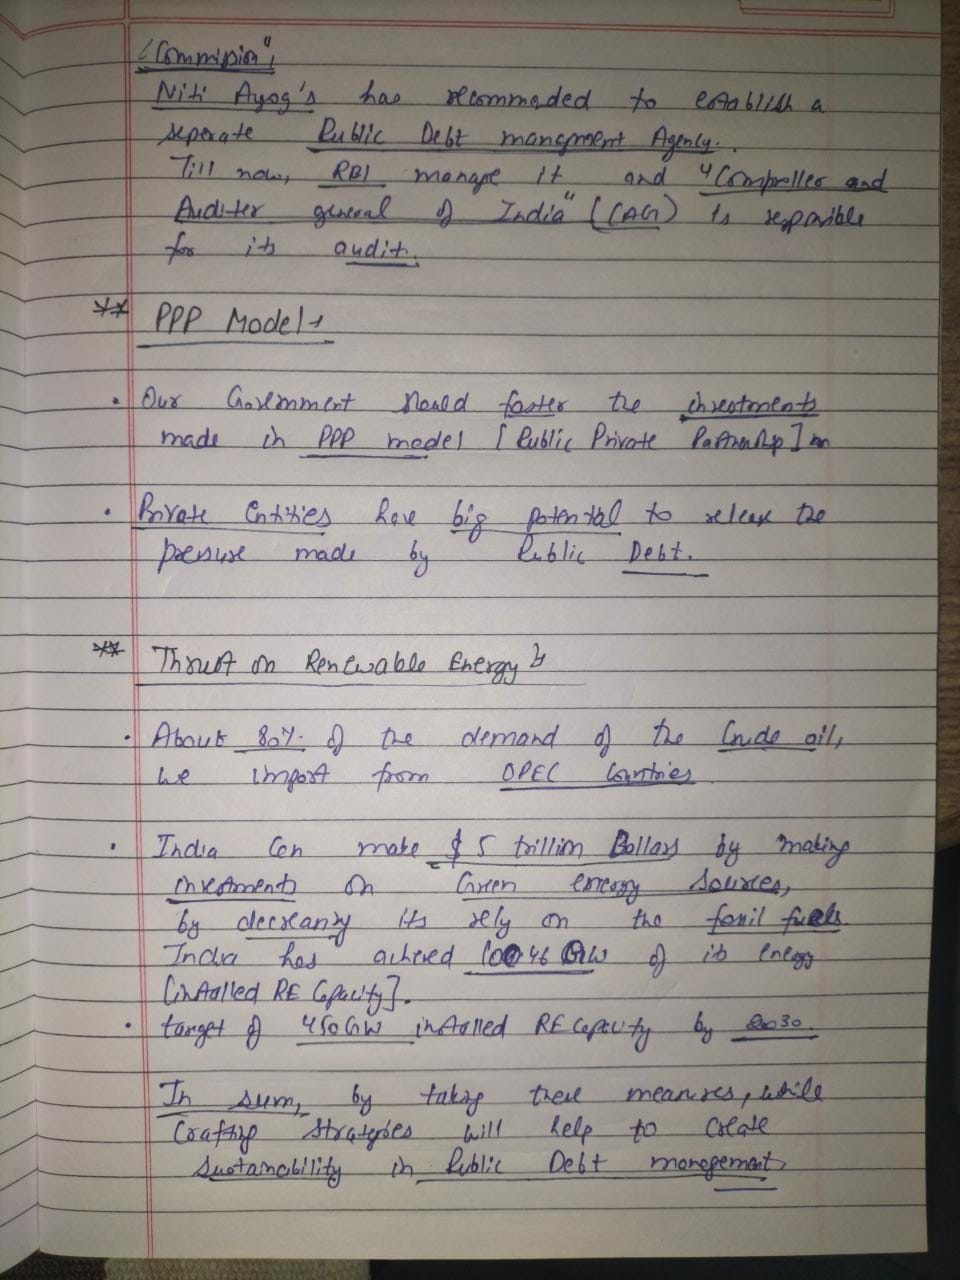 "Commision",
Niti Ayog's has recommaded to establish a
seperate Public Debt mangment Agency.
Till now, RBI mange it and "Comptroller and
Auditer general of India" (CAG) is responsible
for its audit.
** PPP Model →
• Our Government should foster the investments
made in PPP model [Public Private Partnership]
• Private Entities have big potential to release the
pressure made by Public Debt.
** Thrust on Renewable Energy
• About 80% of the demand of the Crude oil,
we import from OPEC Countries
• India Can make $ 5 trillion Dollars by making
investments on Green energy sources,
by decreasing its rely on the fossil fuels
India has achieved 100.46 GW of its energy
[installed RE Capacity].
• target of 450GW installed RE Capacity by 2030.
In sum, by taking these measures, while
Crafting strategies will help to create
sustainability in Public Debt mangement